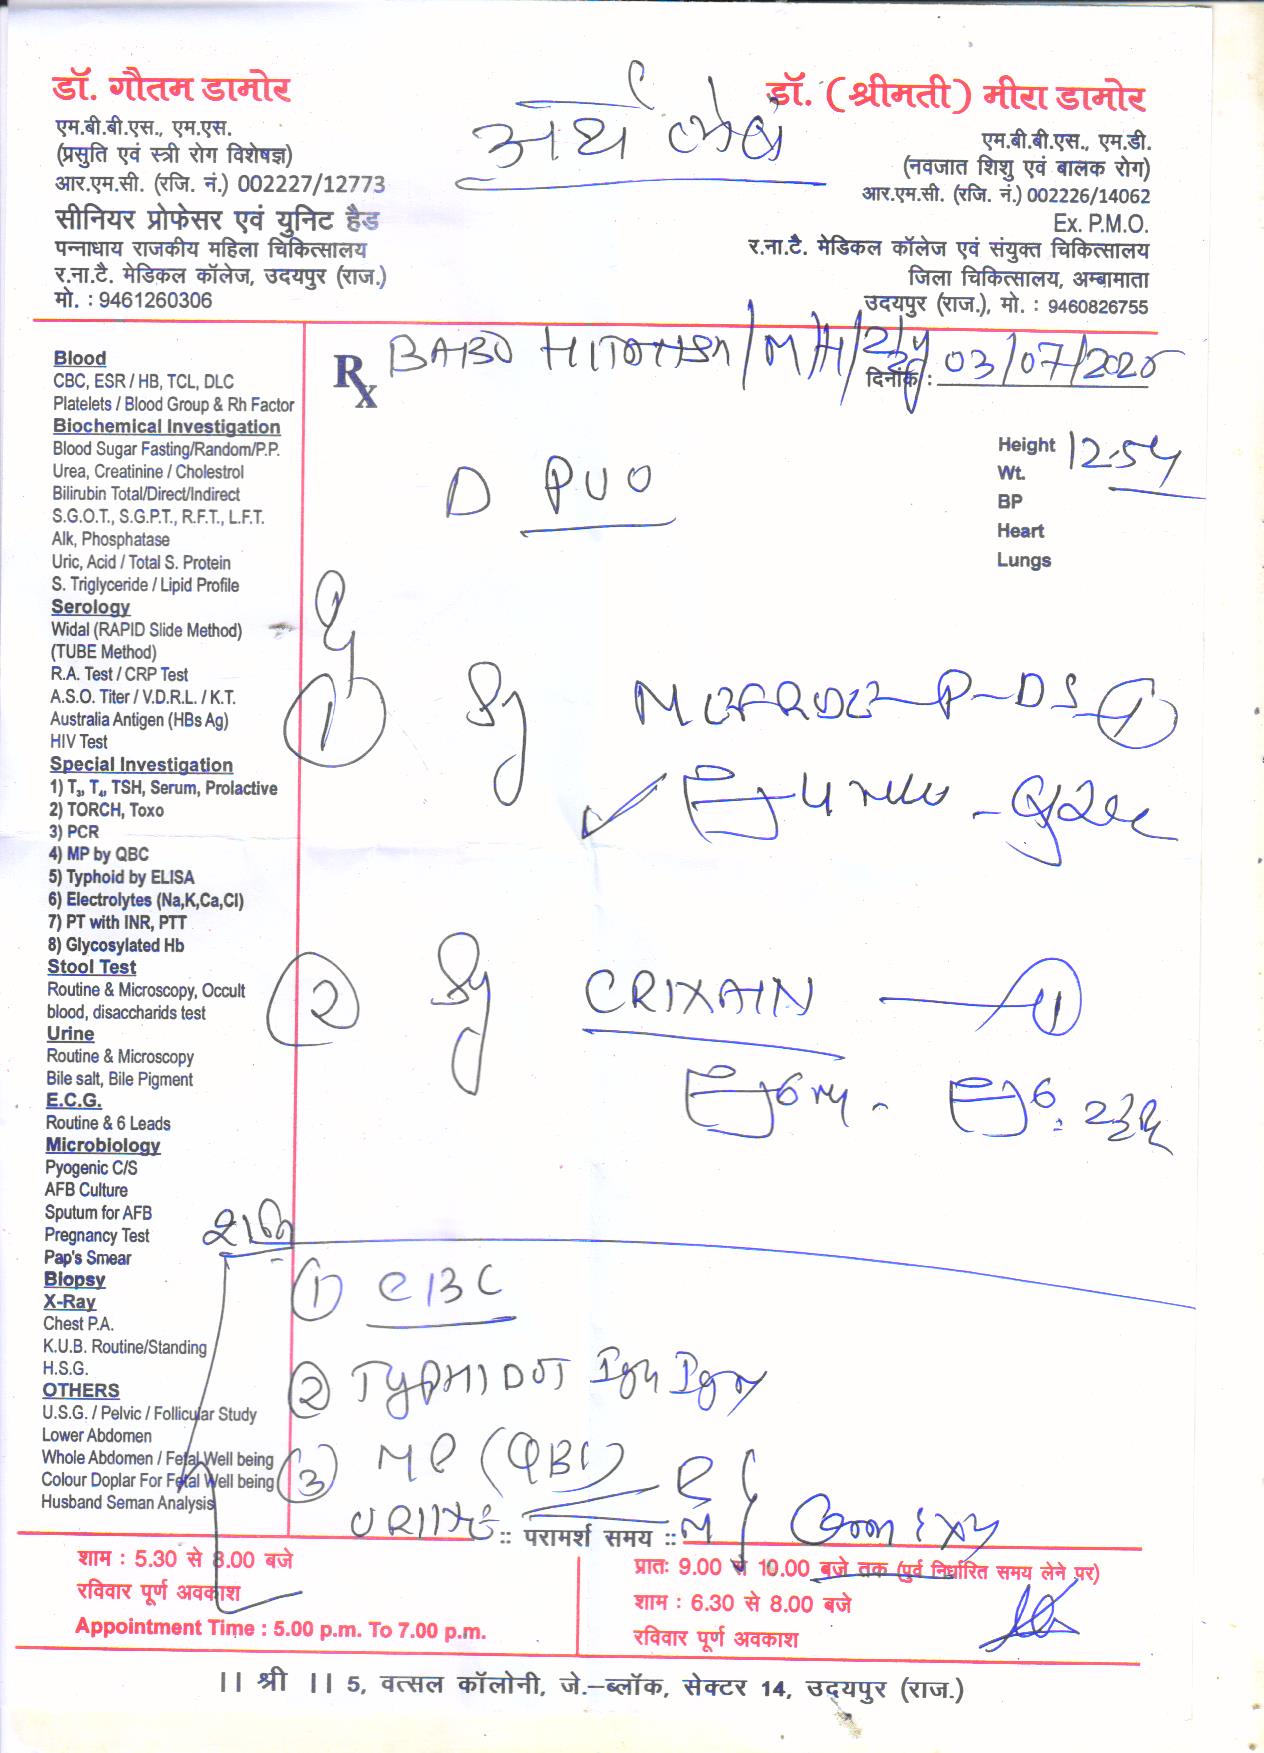 डॉ. गौतम डामोर
एम.बी.बी.एस., एम.एस.
(प्रसुति एवं स्त्री रोग विशेषज्ञ)
आर.एम.सी. (रजि. नं.) 002227/12773
सीनियर प्रोफेसर एवं युनिट हैड
पन्नाधाय राजकीय महिला चिकित्सालय
र.ना.टै. मेडिकल कॉलेज, उदयपुर (राज.)
मो. : 9461260306
डॉ. (श्रीमती) मीरा डामोर
एम.बी.बी.एस., एम.डी.
(नवजात शिशु एवं बालक रोग)
आर.एम.सी. (रजि. नं.) 002226/14062
Ex. P.M.O.
र.ना.टै. मेडिकल कॉलेज एवं संयुक्त चिकित्सालय
जिला चिकित्सालय, अम्बामाता
उदयपुर (राज.), मो. : 9460826755
Blood
CBC, ESR / HB, TCL, DLC
Platelets / Blood Group & Rh Factor
Biochemical Investigation
Blood Sugar Fasting/Random/P.P.
Urea, Creatinine / Cholestrol
Bilirubin Total/Direct/Indirect
S.G.O.T., S.G.P.T., R.F.T., L.F.T.
Alk, Phosphatase
Uric, Acid / Total S. Protein
S. Triglyceride / Lipid Profile
Serology
Widal (RAPID Slide Method)
(TUBE Method)
R.A. Test / CRP Test
A.S.O. Titer / V.D.R.L. / K.T.
Australia Antigen (HBs Ag)
HIV Test
Special Investigation
1) T₃, T₄, TSH, Serum, Prolactive
2) TORCH, Toxo
3) PCR
4) MP by QBC
5) Typhoid by ELISA
6) Electrolytes (Na,K,Ca,Cl)
7) PT with INR, PTT
8) Glycosylated Hb
Stool Test
Routine & Microscopy, Occult
blood, disaccharids test
Urine
Routine & Microscopy
Bile salt, Bile Pigment
E.C.G.
Routine & 6 Leads
Microbiology
Pyogenic C/S
AFB Culture
Sputum for AFB
Pregnancy Test
Pap's Smear
Biopsy
X-Ray
Chest P.A.
K.U.B. Routine/Standing
H.S.G.
OTHERS
U.S.G. / Pelvic / Follicular Study
Lower Abdomen
Whole Abdomen / Fetal Well being
Colour Doplar For Fetal Well being
Husband Seman Analysis
Rx
दिनांक : 03/07/2025
Height
Wt.
BP
Heart
Lungs
D PUO
1 Sy P-DS 1
2 Sy 1
1 CBC
2 TYPHIDOT IgG IgM
3 MP (QBC)
URINE
:: परामर्श समय ::
शाम : 5.30 से 8.00 बजे
रविवार पूर्ण अवकाश
Appointment Time : 5.00 p.m. To 7.00 p.m.
प्रातः 9.00 से 10.00 बजे तक (पुर्व निर्धारित समय लेने पर)
शाम : 6.30 से 8.00 बजे
रविवार पूर्ण अवकाश
|| श्री || 5, वत्सल कॉलोनी, जे.–ब्लॉक, सेक्टर 14, उदयपुर (राज.)